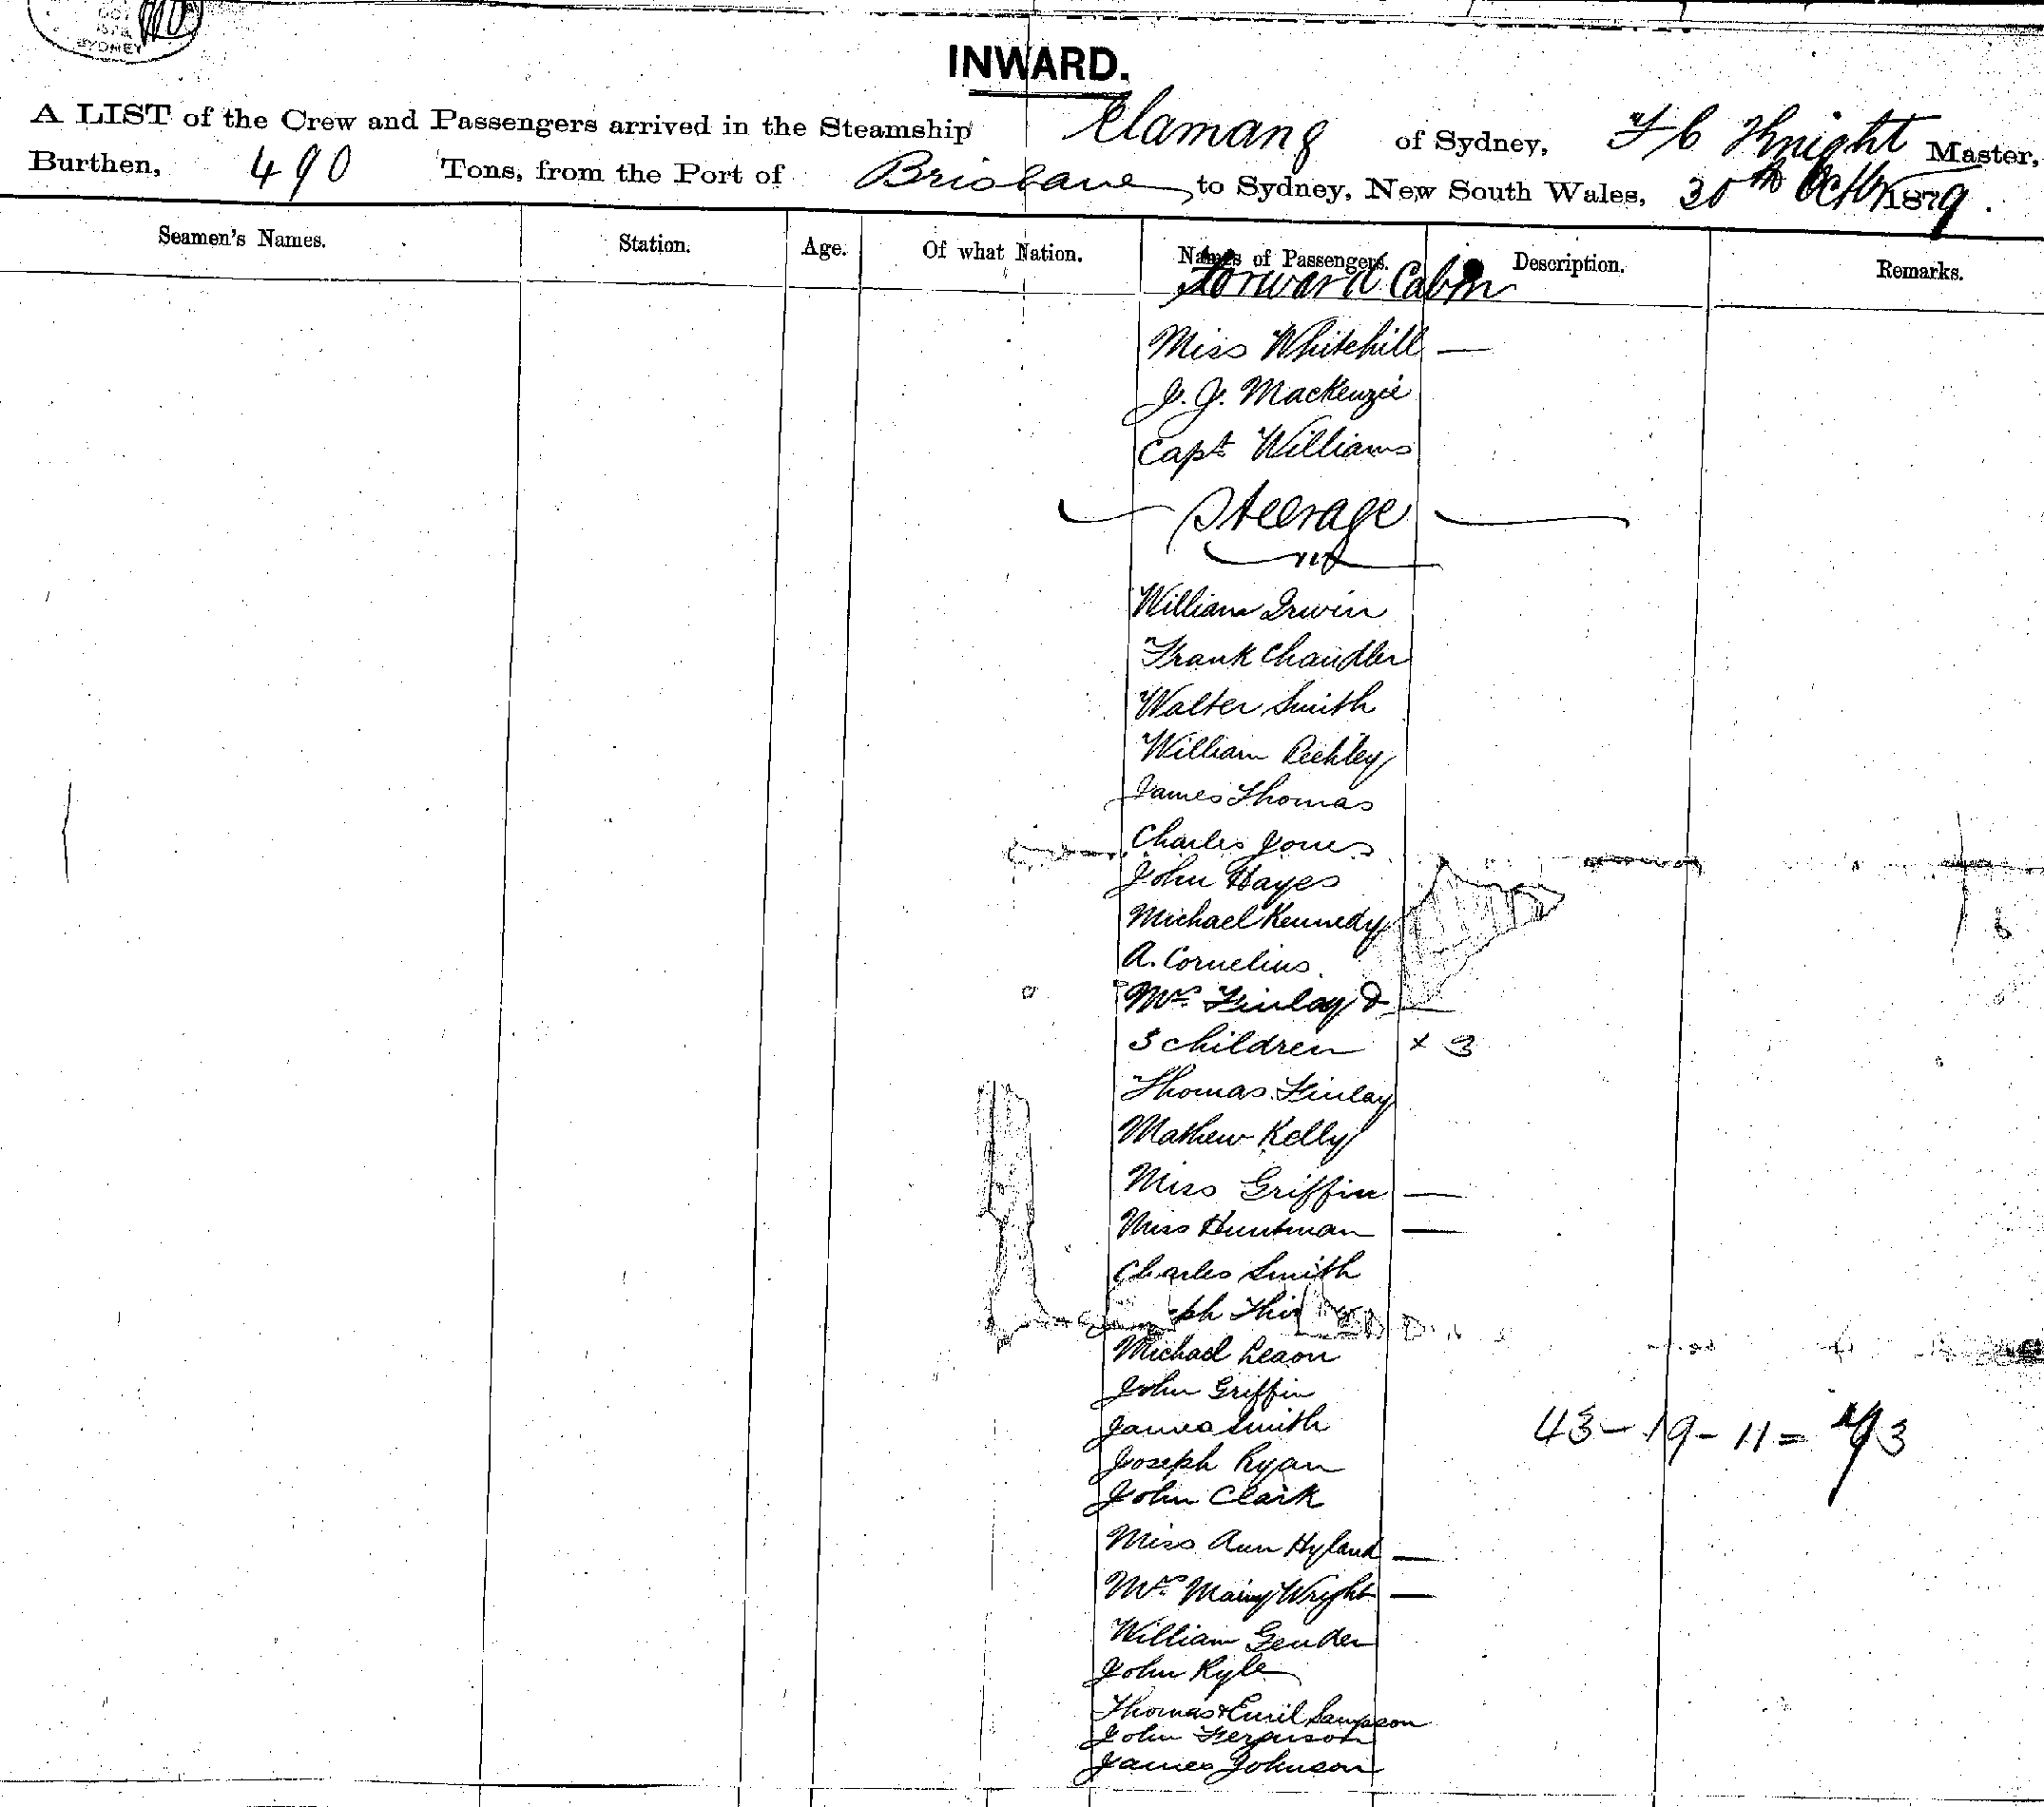 OCT
SYDNEY
INWARD.
A LIST of the Crew and Passengers arrived in the Steamship Elamang of Sydney, Knight Master,
Burthen, 490 Tons, from the Port of Brisbane to Sydney, New South Wales, 30th Octbr 1879.
Seamen's Names. Station. Age. Of what Nation. Names of Passengers. Description. Remarks.
Forward Cabin
Miss Whitehill —
J. J. Mackenzie
Capt Williams
Steerage
William Irwin
Frank Chandler
Walter Smith
William
James Thomas
Charles Jones
John Hayes
Michael Kennedy
A. Cornelius.
Mrs Finlay & —
3 children × 3
Thomas Finlay
Mathew Kelly
Miss Griffin —
Miss Huntman —
Charles Smith
eph
Michael Leaon
John Griffin
James Smith
Joseph Ryan
John Clark
43 - 19 - 11 = 73
Miss Ann Hyland —
Mrs Mary Wright —
William Gender
John Kyle
Thomas & Emil Sampson
John Ferguson
James Johnson